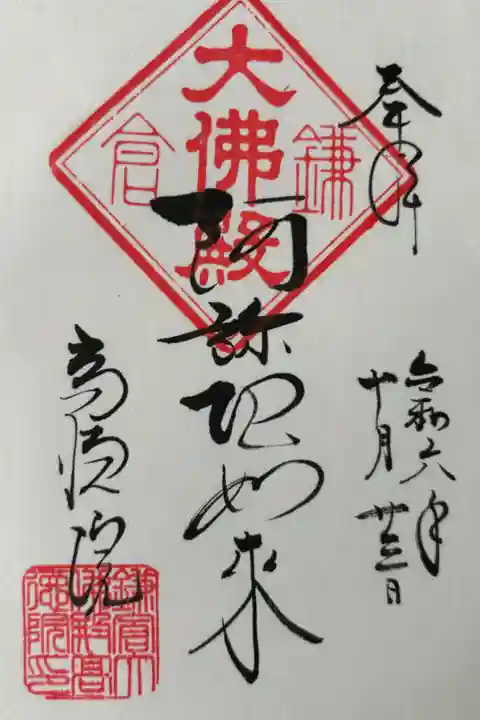 奉拝
令和六年
十月廿三日
鎌倉
大佛殿
阿弥陀如来
高徳院